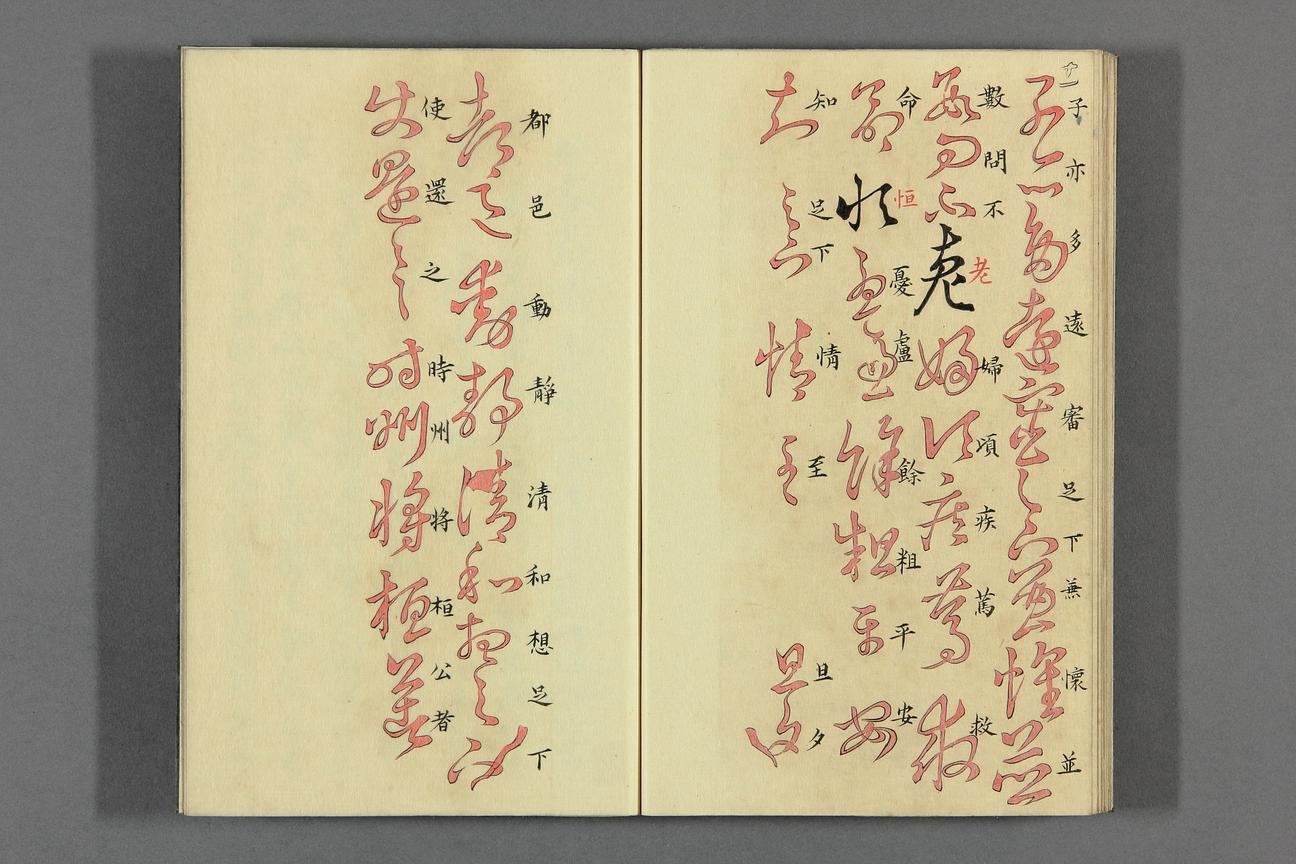 子亦多遠審足下蕪懷並
數問不老婦頃疾篤救
命恒憂盧餘粗平安
知足下情至旦夕
都邑動靜清和想足下
使還之時州將桓公者